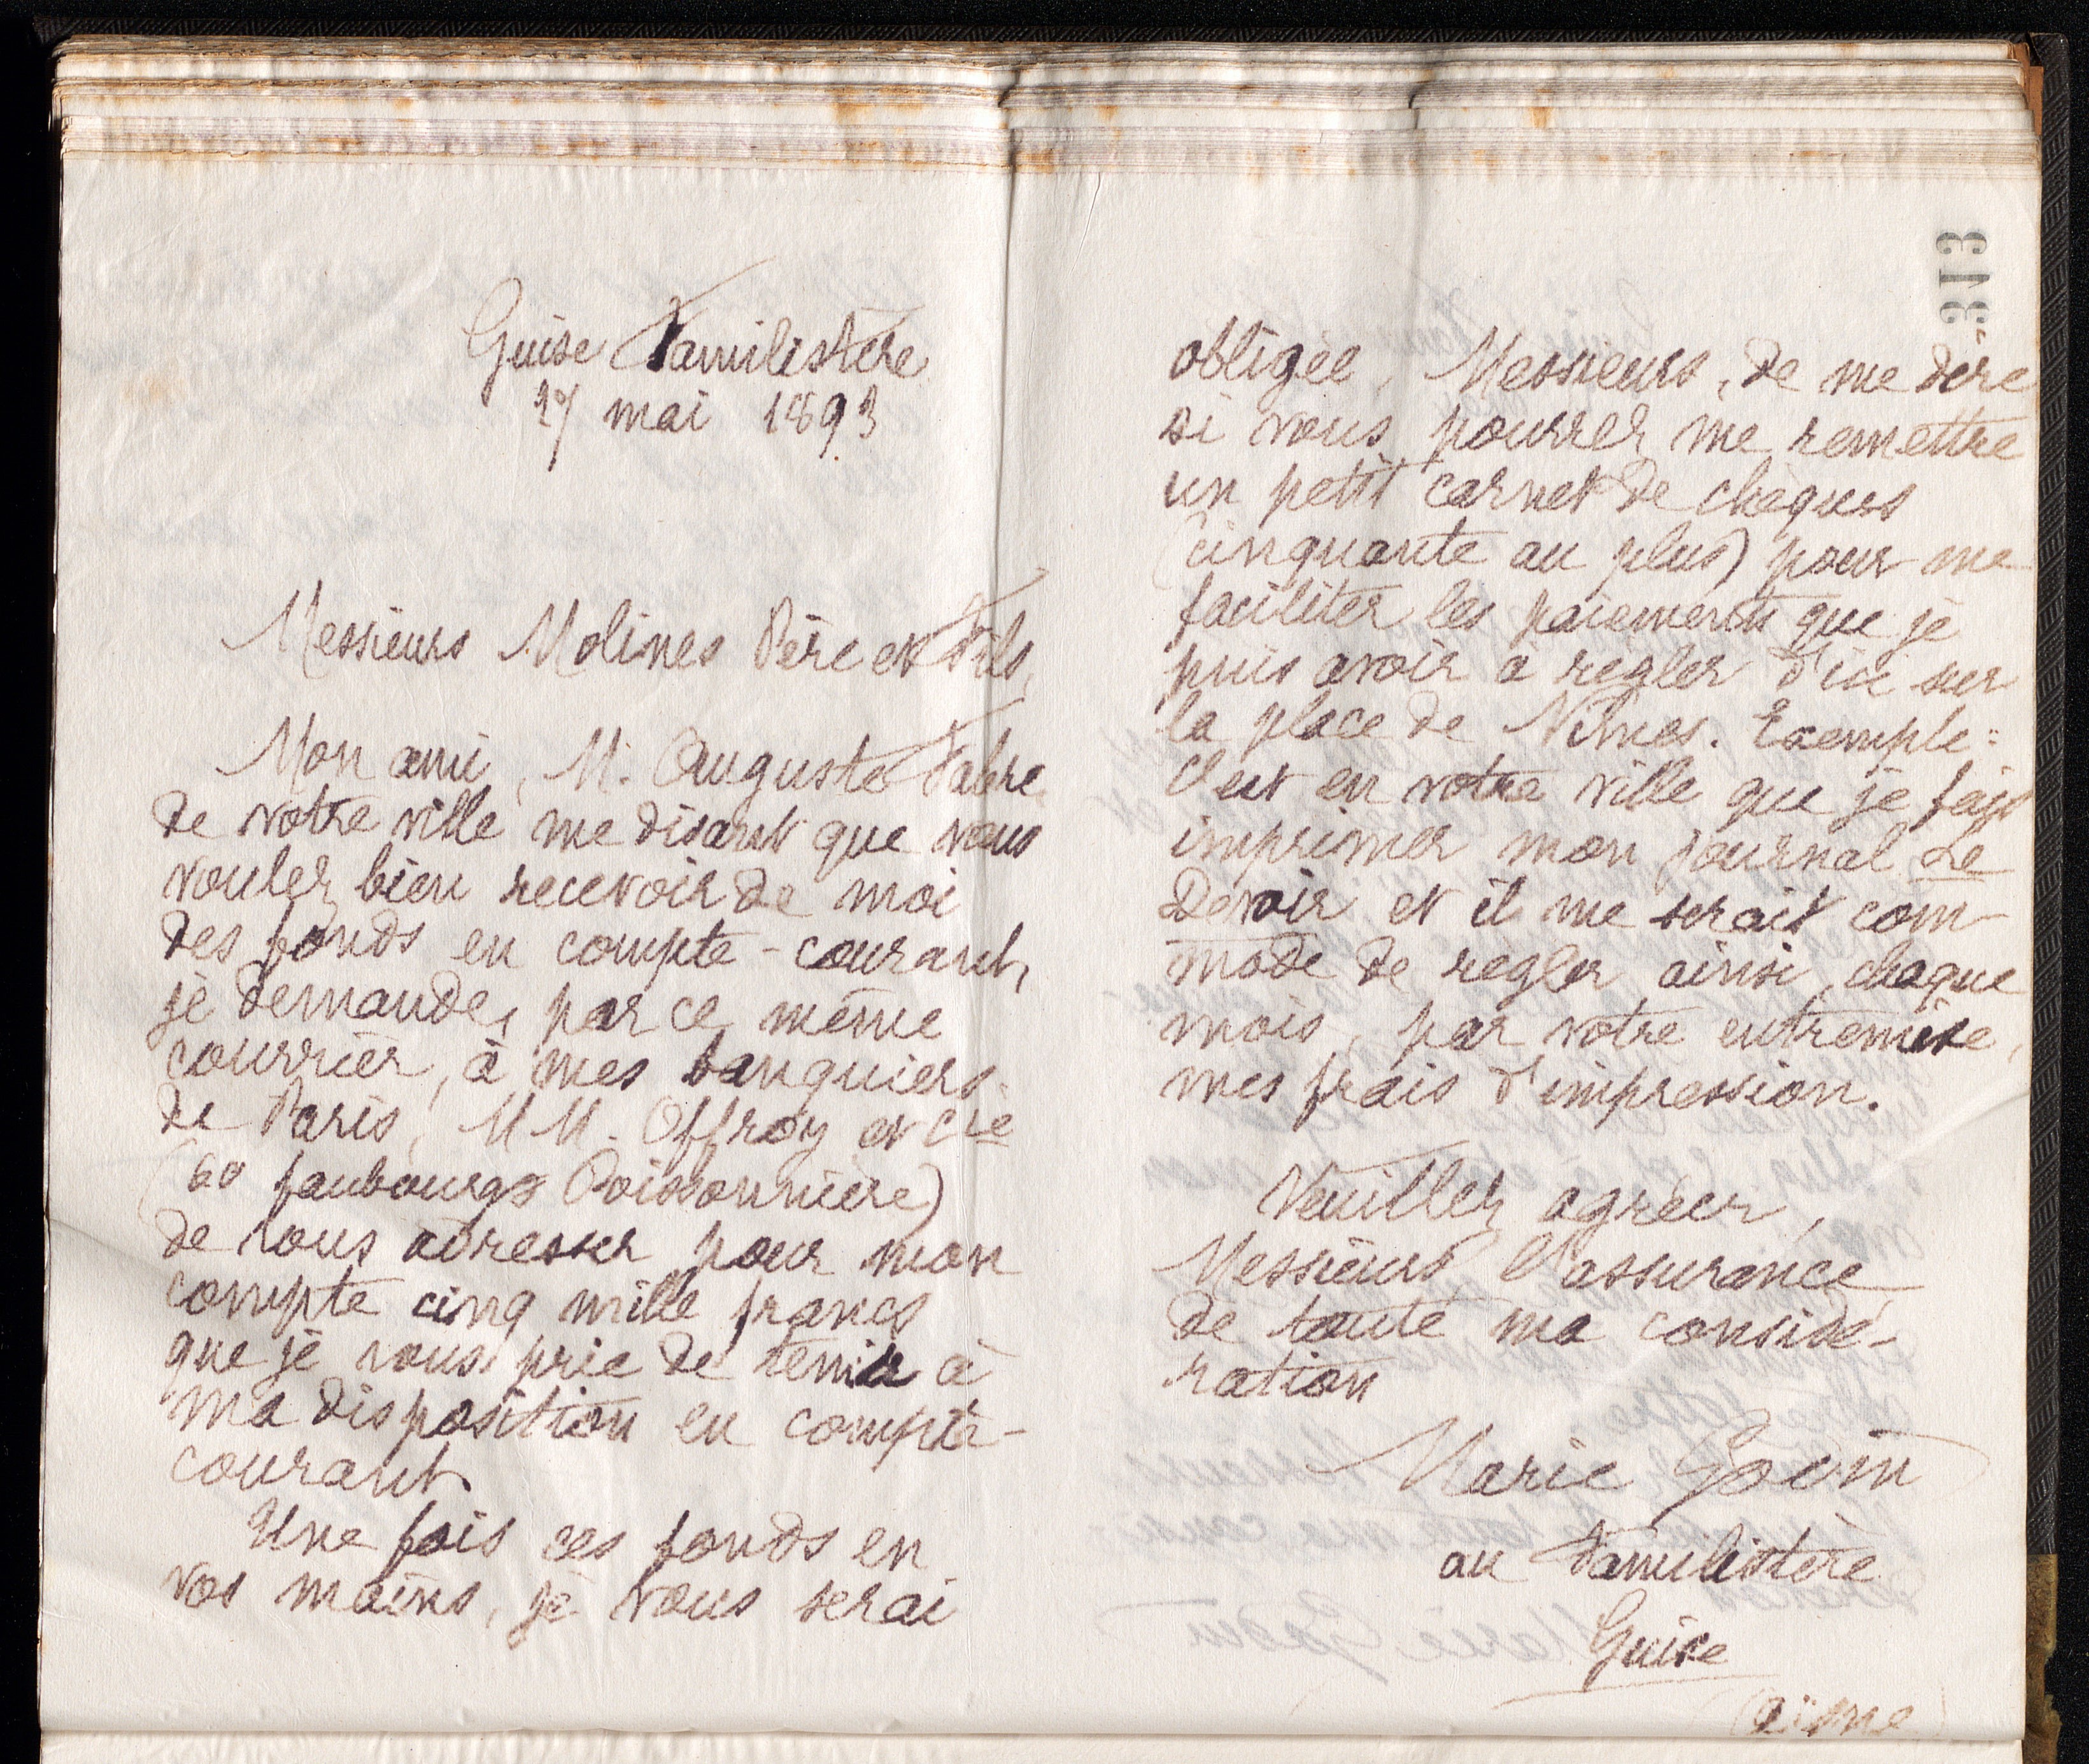 Guise Familistère
17 mai 1893
Messieurs Molines Père et Fils,
Mon ami, M. Auguste Fabre
de votre ville me disant que vous
voulez bien recevoir de moi
des fonds en compte-courant,
je demande, par ce même
courrier, à mes banquiers
de Paris, MM. Offroy et Cie
(60 faubourg Poissonnière)
de vous adresser pour mon
compte cinq mille francs
que je vous prie de tenir à
ma disposition en compte-
courant.
Une fois ces fonds en
vos mains, je vous serai
313
obligée, Messieurs, de me dire
si vous pourrez me remettre
un petit carnet de chèques
(cinquante au plus) pour me
faciliter les paiements que je
puis avoir à régler d'ici sur
la place de Nîmes. Exemple:
C'est en votre ville que je fais
imprimer mon journal Le
Devoir et il me serait com-
mode de régler ainsi, chaque
mois, par votre entremise,
mes frais d'impression.
Veuillez agréer,
Messieurs l'assurance
de toute ma considé-
ration
Marie Godin
au Familistère
Guise
(Aisne)